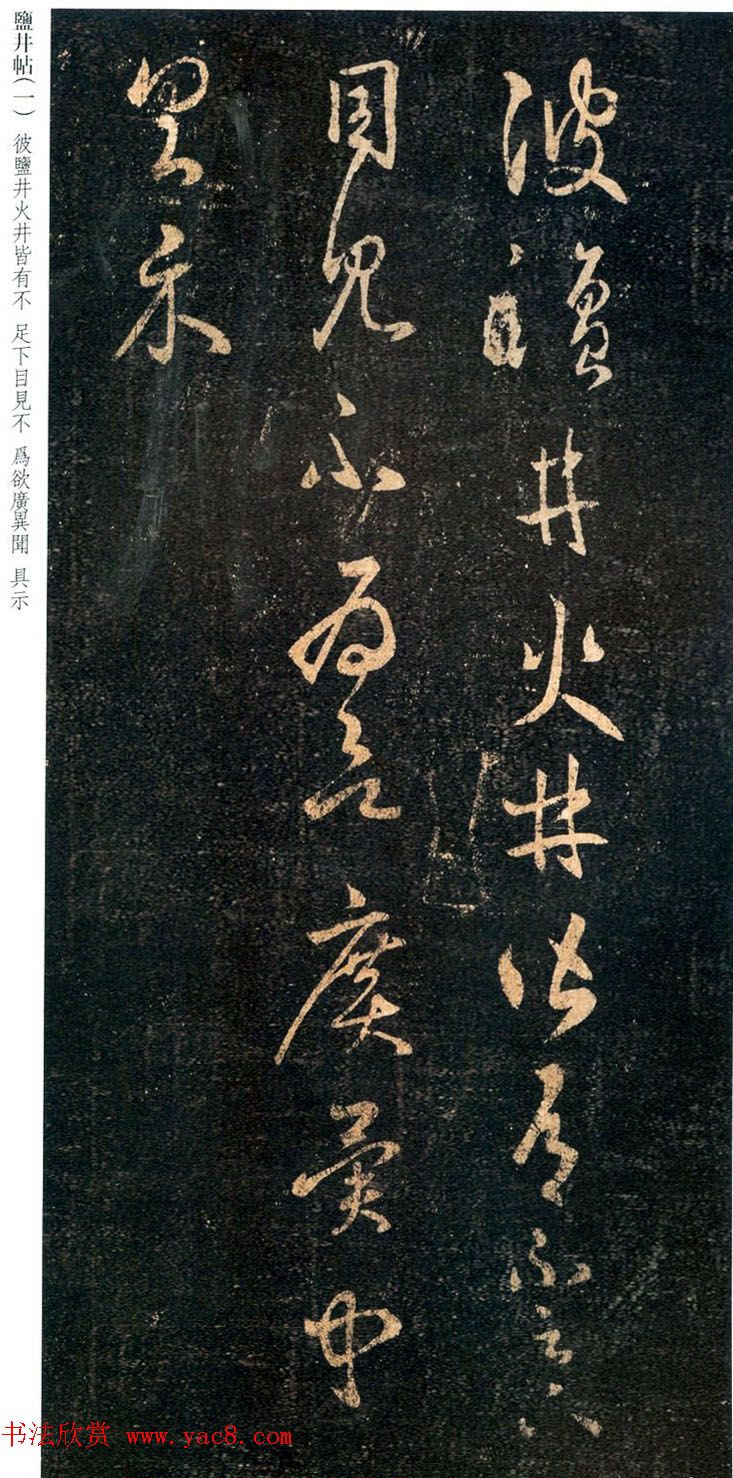 彼鹽井火井皆有不足下
目見不爲欲廣異聞
具示
鹽井帖(一) 彼鹽井火井皆有不 足下目見不 爲欲廣異聞 具示
书法欣赏 www.yac8.com